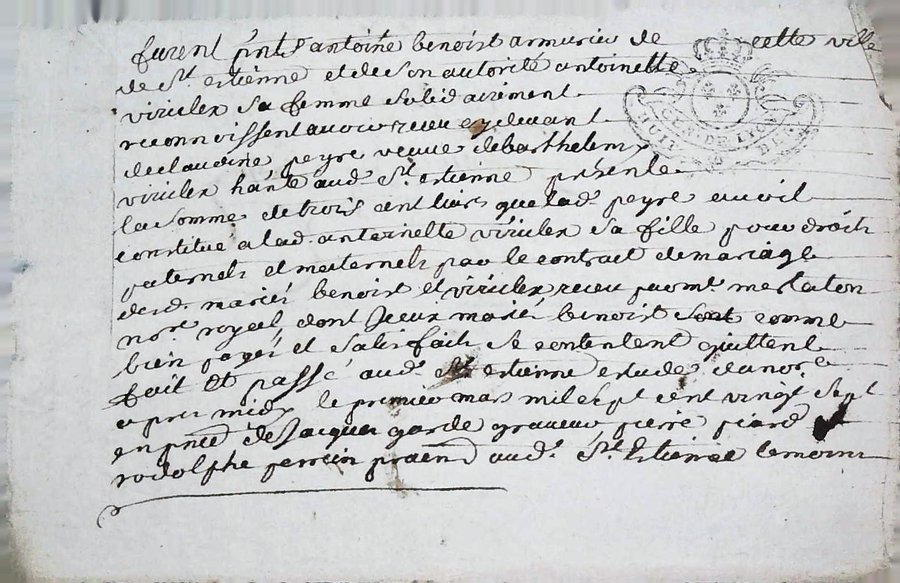 furent pnts antoine benoist armurier de cette ville
de st estienne et de son autorité antoinette
viriclex sa femme solidairement
reconnoissent avoir receu cy devant
de claudine peyre veuve de barthelemy
viriclex hante aud. st estienne présente
la somme de trois cent livres que lad. peyre avoit
constitué a lad. antoinette viriclex sa fille pour droits
paternels et maternels par le contrat de mariage
desd. mariés benoist et viriclex receu par
nore royal, dont iceux mariés benoist sont comme
bien payés et satisfaits se contentent quittent
fait et passé aud. st estienne estude dud nore
apres midy le premier mars mil sept cent vingt sept
en pnce de Jacques garde graveur pierre
rodolphe perrin praen aud. st Estienne temoins
HUIT DEN
GEN. DE LYON